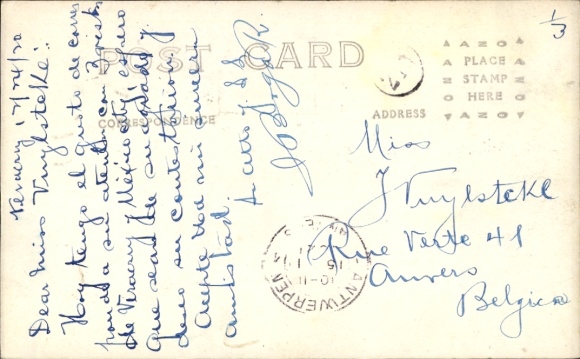 POST CARD
CORRESPONDENCE
ADDRESS
AZO
PLACE
STAMP
HERE
AZO
1/3
Dear Miss Vuylsteke:
Hoy tengo el gusto de corres
pondo a su atenta con 3 vistas
de Veracruz y Mexico city espero
que sean de su agrado y
deseo su contestacion
Acepte Ud mi sincera
amistad.
Miss
J Vuylsteke
Rue Verte 41
Anvers
Belgica
ANTWERPEN